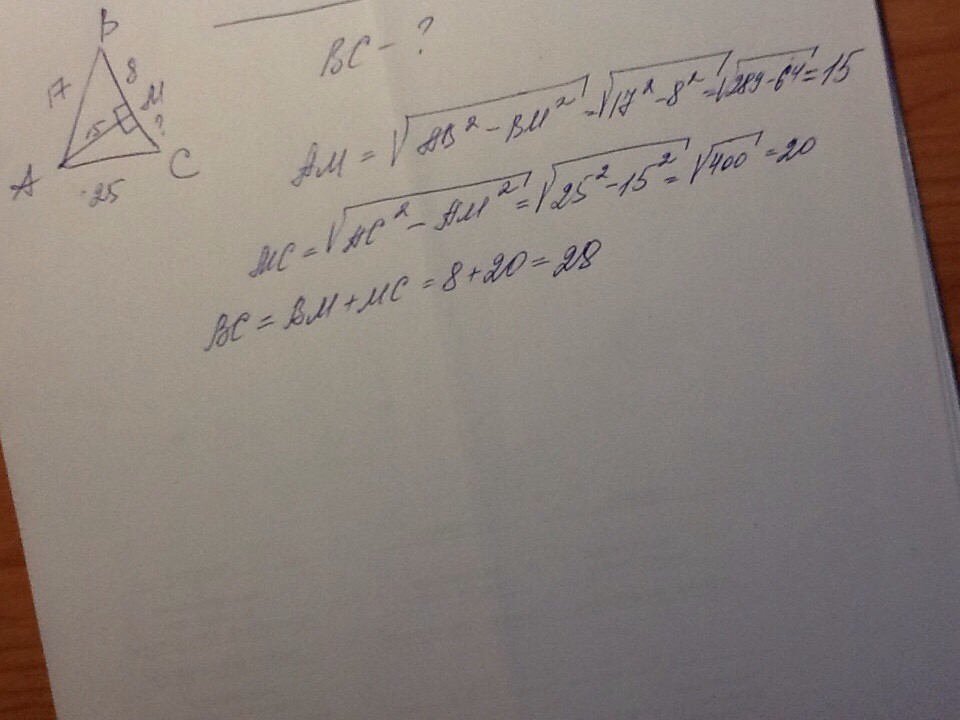 B
17
8
M
15
?
A
C
25
BC - ?
AM = √(AB² - BM²) = √(17² - 8²) = √(289 - 64) = 15
MC = √(AC² - AM²) = √(25² - 15²) = √400 = 20
BC = BM + MC = 8 + 20 = 28